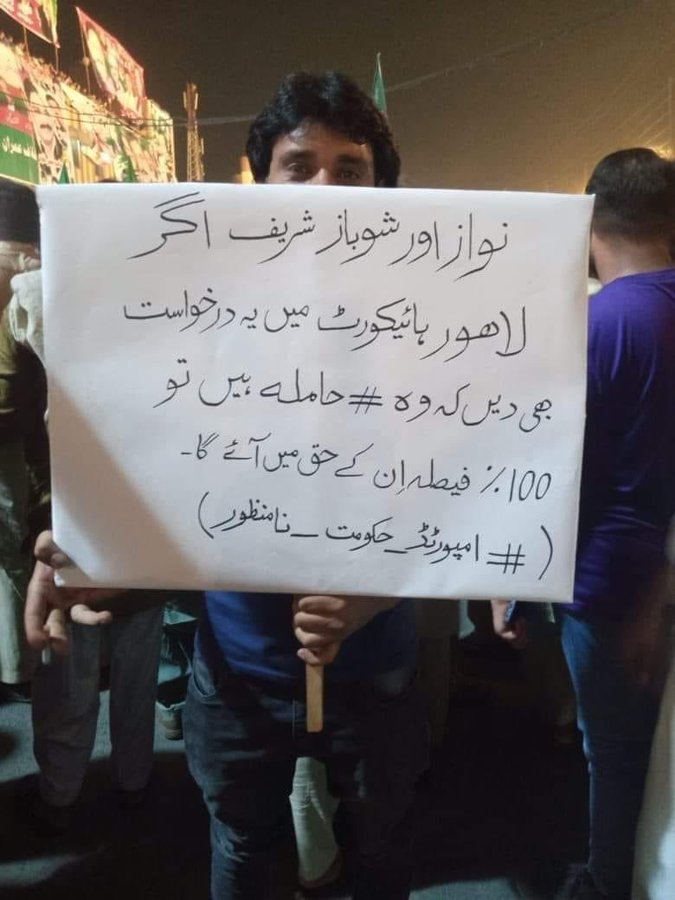 نواز اور شوباز شریف اگر
لاھور ہائیکورٹ میں یہ درخواست
بھی دیں کہ وہ # حاملہ ہیں تو
100٪ فیصلہ اِن کے حق میں آئے گا۔
(# امپورٹڈ_حکومت_نامنظور)